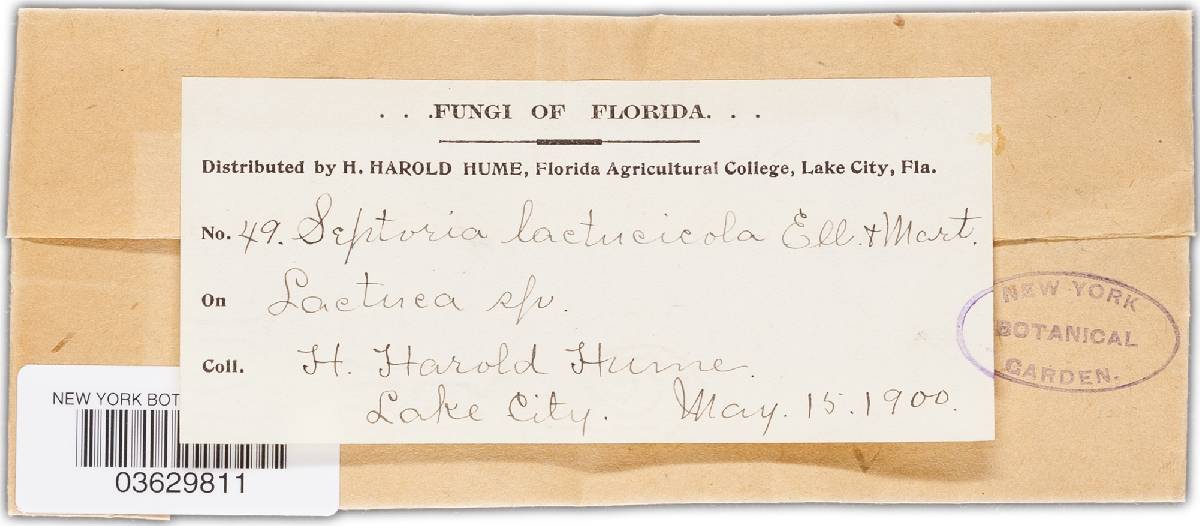 . . .FUNGI OF FLORIDA. . .
Distributed by H. HAROLD HUME, Florida Agricultural College, Lake City, Fla.
No. 49. Septoria lactucicola Ell. & Mart.
On Lactuca sp.
Coll. H. Harold Hume.
Lake City. May. 15. 1900.
NEW YORK
BOTANICAL
GARDEN.
NEW YORK BOT
03629811